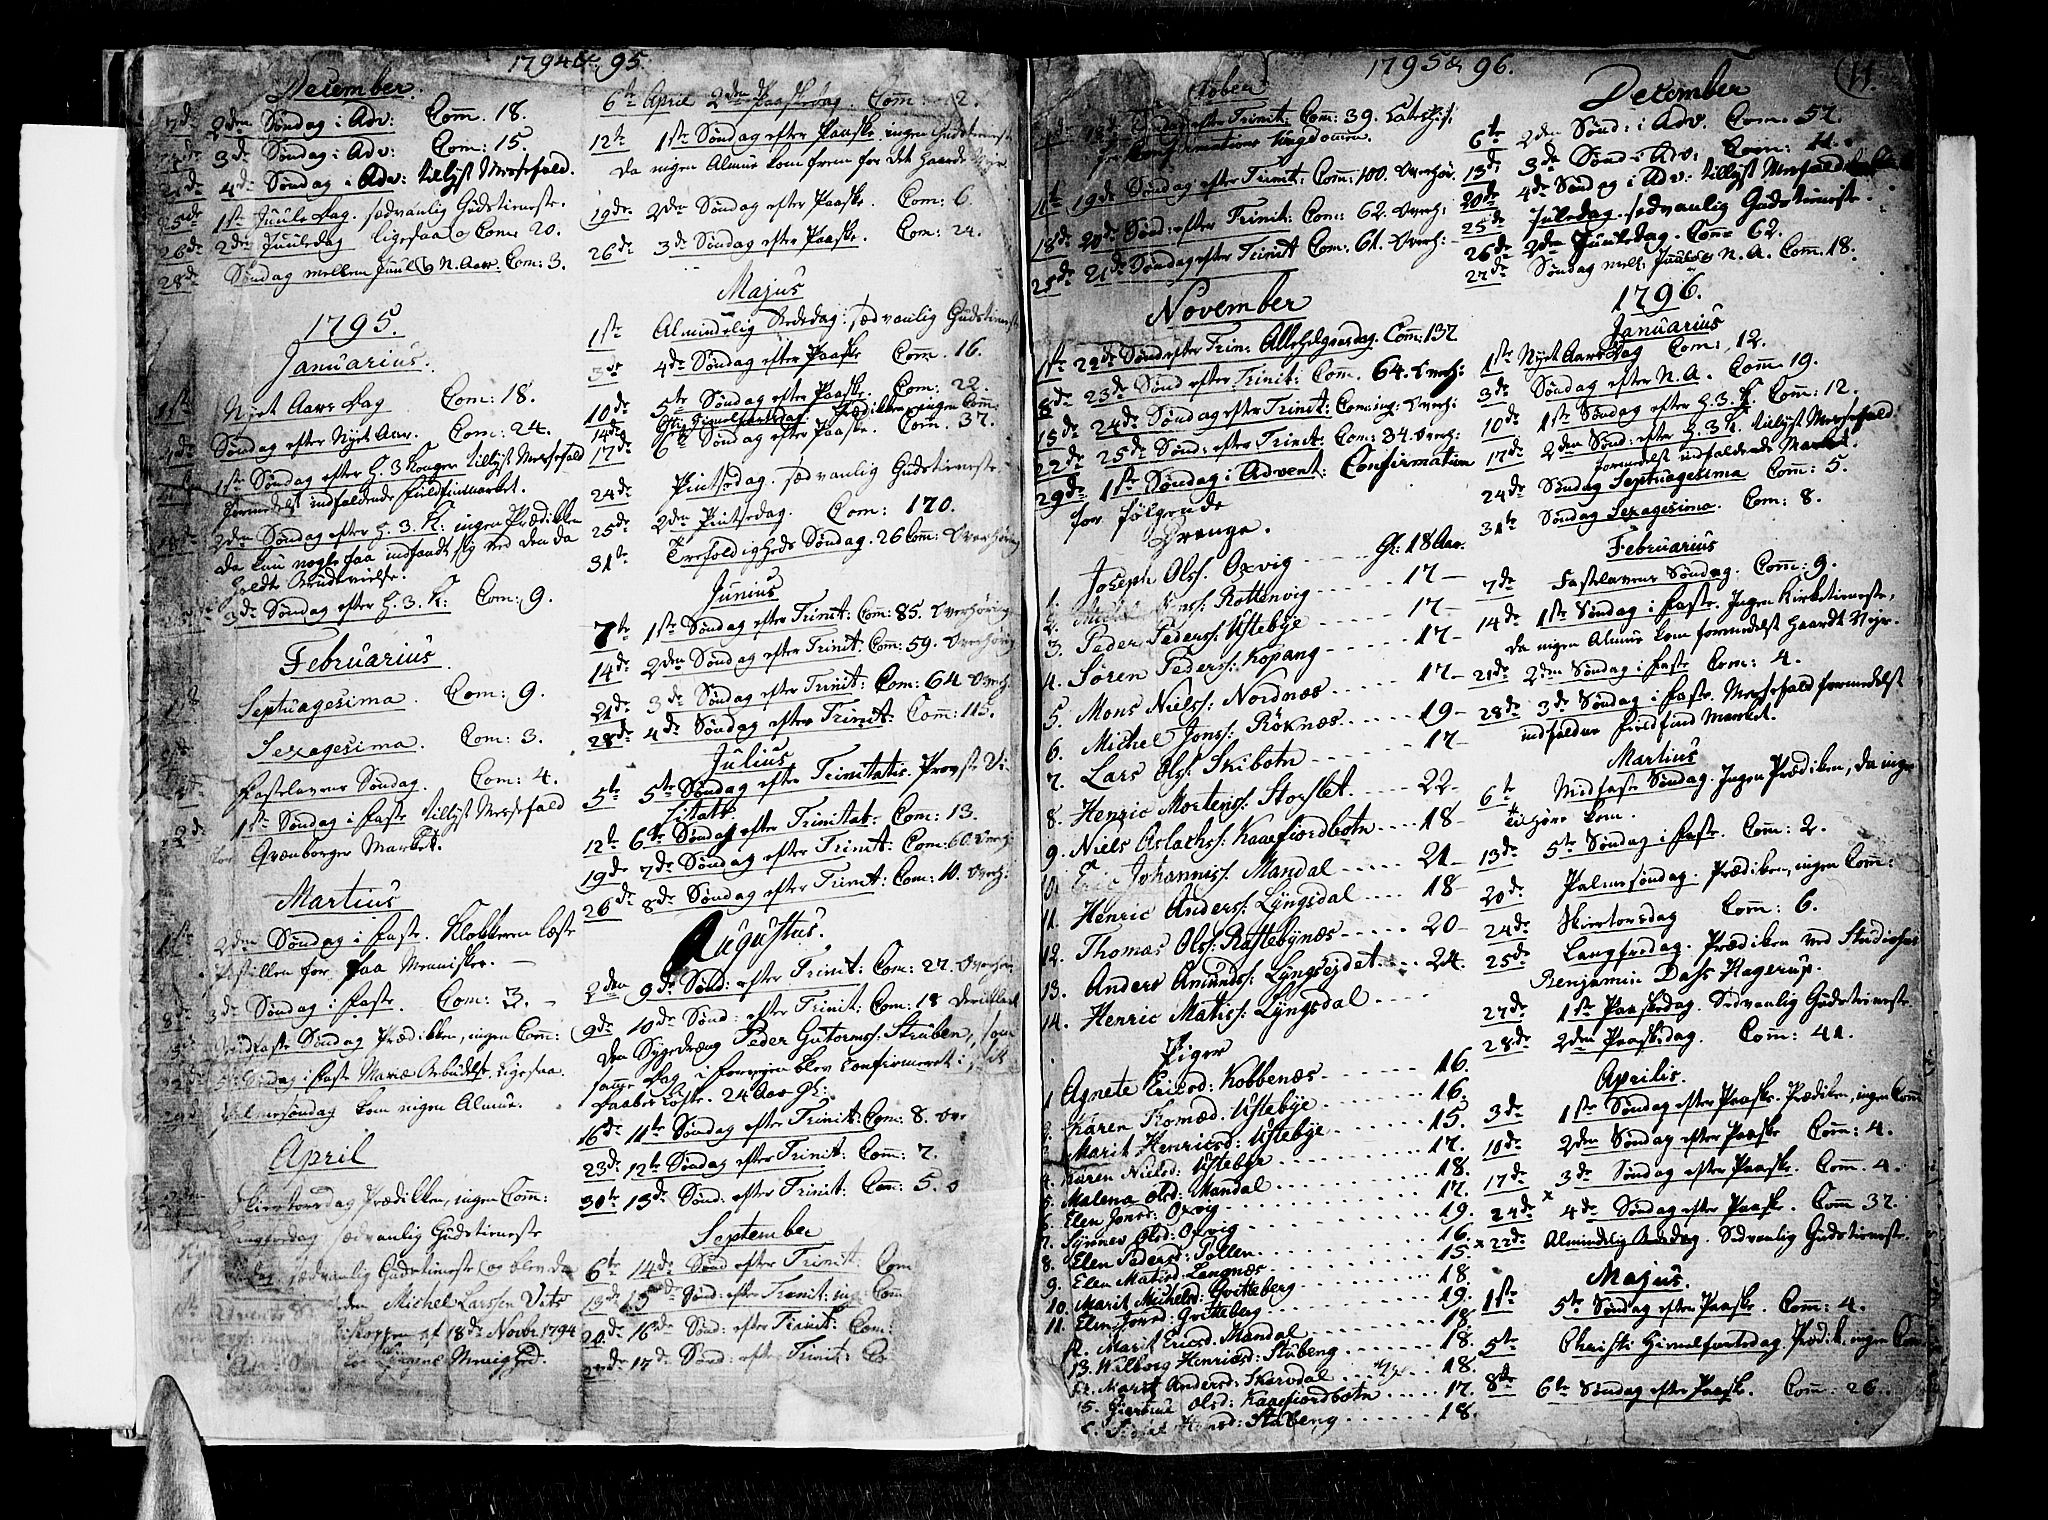 1794 & 95.
December.
7de 2den Søndag i Adv: Com̃. 18.
3de Søndag i Adv: Com: 15.
21de 4de Søndag i Adv: tillyst Messefald.
25de 1ste Juule Dag. sædvanlig Gudstieneste.
26de 2den Juuledag ligesaa Com: 20.
28de Søndag mellem Juul & N. Aar. Com: 3.
1795.
Januarius.
1ste Nyet Aars Dag Com: 18.
4de Søndag efter Nyet Aar. Com: 24.
1ste Søndag efter H. 3 Konger tillyst Messefald
formedelst indfaldende
18de 2den Søndag efter H. 3 K: ingen Prædikken
da kun nogle faa indfandt sig ved den da
holdte Brudevielse.
25de 3de Søndag efter H. 3. K: Com: 9.
Februarius
Septuagesima. Com: 9.
Sexagesima. Com: 3.
Fastelavens Søndag. Com: 4.
22de 1ste Søndag i Faste tillyst Messefald
for Marked.
Martius
1ste 2den Søndag i Faste. Klokkeren læste
Postillen for faa Mennisker.
8de 3de Søndag i Faste. Com: 3.
15de Midfaste Søndag Prædikken, ingen Com̃:
22de 5te Søndag i Faste Mariæ Bebudelse. Ligesaa.
29de Palmesøndag kom ingen Almue.
April
Skiertorsdag Prædikken, ingen Com̃:
Langfredag sædvanlig Gudstieneste
sædvanlig Gudstieneste og blev da
Michel Larssen
af 18de Novbr 1794
Menighed.
6te April 2den Paaskedag. Com̃: 12.
12te 1ste Søndag efter Paaske ingen Gudstieneste
da ingen Almue kom frem for det haarde Vejr.
19de 2den Søndag efter Paaske. Com: 6
26de 3de Søndag efter Paaske. Com: 24.
Majus
1ste Almindelig Bededag: sædvanlig Gudstieneste
3de 4de Søndag efter Paaske Com̃. 16.
10de 5te Søndag efter Paaske. Com: 22.
14de Himmelfartsdag Prædikken, ingen Com̃:
17de 6te Søndag efter Paaske. Com̃. 37.
24de Pintsedag. sædvanlig Gudstieneste.
25de 2den Pintsedag. Com: 170.
31te Trefoldigheds Søndag. 26 Com̃: Overhøring
Junius
7te 1ste Søndag efter Trinit: Com̃: 85. Overhøring
14de 2den Søndag efter Trinit: Com: 59. Overhøring
21de 3de Søndag efter Trinit: Com: 64 Overh:
28de 4de Søndag efter Trinit: Com̃: 115.
Julius
5te 5te Søndag efter Trinitatis. Provste Vi-
sitats.
12te 6te Søndag efter Trinitat: Com: 13.
19de 7de Søndag efter Trinit: Com: 60. Overh:
26de 8de Søndag efter Trinit: Com: 10. Overh:
Augustus.
2den 9de Sønd: efter Trinit: Com: 27. Overhør:
9de 10de Sønd: efter Trinit: Com: 18
den Sygedreng Peder Guttormss: Strüben, som
samme Dag i forvejen blev Confirmeret i sit
24 Aar gl:
16de 11te Søndag efter Trinit: Com: 8. Ov
23de 12te Søndag efter Trinit: Com̃: 7.
30te 13de Sønd: efter Trinit: Com: 5.
September
6te 14de Sønd efter Trinit: Com
13de 15de Sønd: efter Trinit: ing: Com̃
20de 16de Sønd: efter Trinit: Com:
27de 17de Sønd: efter Trinit: Co
1795 & 96.
11.
18de Søndag efter Trinit: Com: 39. Catechis:
Confirmations Ungdommen.
11te 19de Søndag efter Trinit: Com̃: 100. Overhør.
18de 20de Sønd: efter Trinit: Com: 62. Overh:
25de 21de Søndag efter Trinit Com: 61. Overh:
November
1ste 22de Sønd efter Trin: Allehelgensdag. Com̃: 137
8de 23de Sønd efter Trinit: Com. 64. Overh:
15de 24de Søndag efter Trinit: Com: ing: Overh:
22de 25de Sønd: efter Trinit: Com: 34. Overh:
29de 1ste Søndag i Advent: Confirmation
for følgende
Drenge.
1. Joseph Olss: Oxvig Gl: 18 Aar.
2. Rottenvig 17
3. Peder Pederss: Ystebye 17
4. Søren Pederss: Kopang 17
5. Mons Nielss: Nordnæs 17
6. Michel Jonss: Røknæs 19
7. Lars Olss: Skibotn 17
8. Henric Mortenss: Storslet 22
9. Niels Aslachss: Kaaefiordbotn 18
10. Eric Johanniss: Mandal 21
11. Henric Anderss: Lyngsdal 18
12. Thomas Olss: Røftebynæs 20
13. Anders Amundss: Lyngsejdet 24.
14. Henric Matiss: Lyngsdal
Piger
1 Agnete Ericsd: Kobbenæs 16.
2. Karen Tomæd: Ystebye 16.
3. Marit Henricsd: Ystebye 15.
4. Karen Nielsd: Ystebye 17.
5. Malena Olsd: Mandal 18.
6. Elen Jonsd: Oxvig 17.
7. Synnev Olsd: Oxvig 19.
8. Elen Pedersd: Pollen 16
9. Elen Matisd: Langnæs 15
10. Marit Michelsd: Qvitteberg 18.
11. Elen Jonsd: Qvitteberg 19.
12. Marit Ericsd: Mandal 18
13. Wilborg Henricsd: Stüberg 18.
14. Marit Andersd: Skarvdal 18.
15. Giertrue Olsd: Kaaefiordbotn 17.
Stüberg 18.
December
6te 2den Sønd: i Adv. Com. 57.
13de 3de Sønd: i Adv: Com: 11.
20de 4de Søndag i Adv: tillyst Messefald
25de Juledag. sædvanlig Gudstieneste.
26de 2den Juuledag. Com 62.
27de Søndag mell: Juul & N. A. Com. 18.
1796.
Januarius
1ste Nyet Aars Dag Com: 12.
3de Søndag efter N. A. Com̃. 19.
10de 1ste Søndag efter H. 3. K. Com̃: 12.
17de 2den Sønd: efter H. 3 K. tillyst Messefald.
formedelst indfaldende Marked.
24de Søndag Septuagesima Com: 5.
31te Søndag Sexagesima. Com: 8.
Februarius
7de Fastelavens Søndag. Com: 9.
14de 1ste Søndag i Faste. Ingen Kirketieneste,
da ingen Almue kom formedelst haardt Vejr.
21de 2den Søndag i Faste Com: 4.
28de 3de Søndag i Faste. Messefald formedelst
indfalden Marked.
Martius
6te Midfaste Søndag. Ingen Prædiken, da ingen
til Kirke kom.
13de 5te Søndag i Faste. Com: 2.
20de Palmesøndag. Prædiken, ingen Com̃:
24de Skiertorsdag Com̃: 6.
25de Langfredag. Prædiken ved Studiosus
Benjamin Dass Hagerup.
27de 1ste Paaskedag. Sedvanlig Gudstieneste
28de 2den Paaskedag. Com̃: 41.
Aprilis.
3de 1ste Søndag efter Paaske. Prædiken, ingen Com̃
10de 2den Søndag efter Paaske Com̃: 4.
17de 3de Søndag efter Paaske. Com̃: 4.
24de x 4de Søndag efter Paaske. Com̃ 32.
x 22de Almindelig Bededag. Sedvanlig Gudstieneste.
Majus.
1ste 5te Søndag efter Paaske. Com̃: 4.
5te Christi Himmelfartsdag. Prædik: ingen Com
8de 6te Søndag efter Paaske. Com̃. 26.